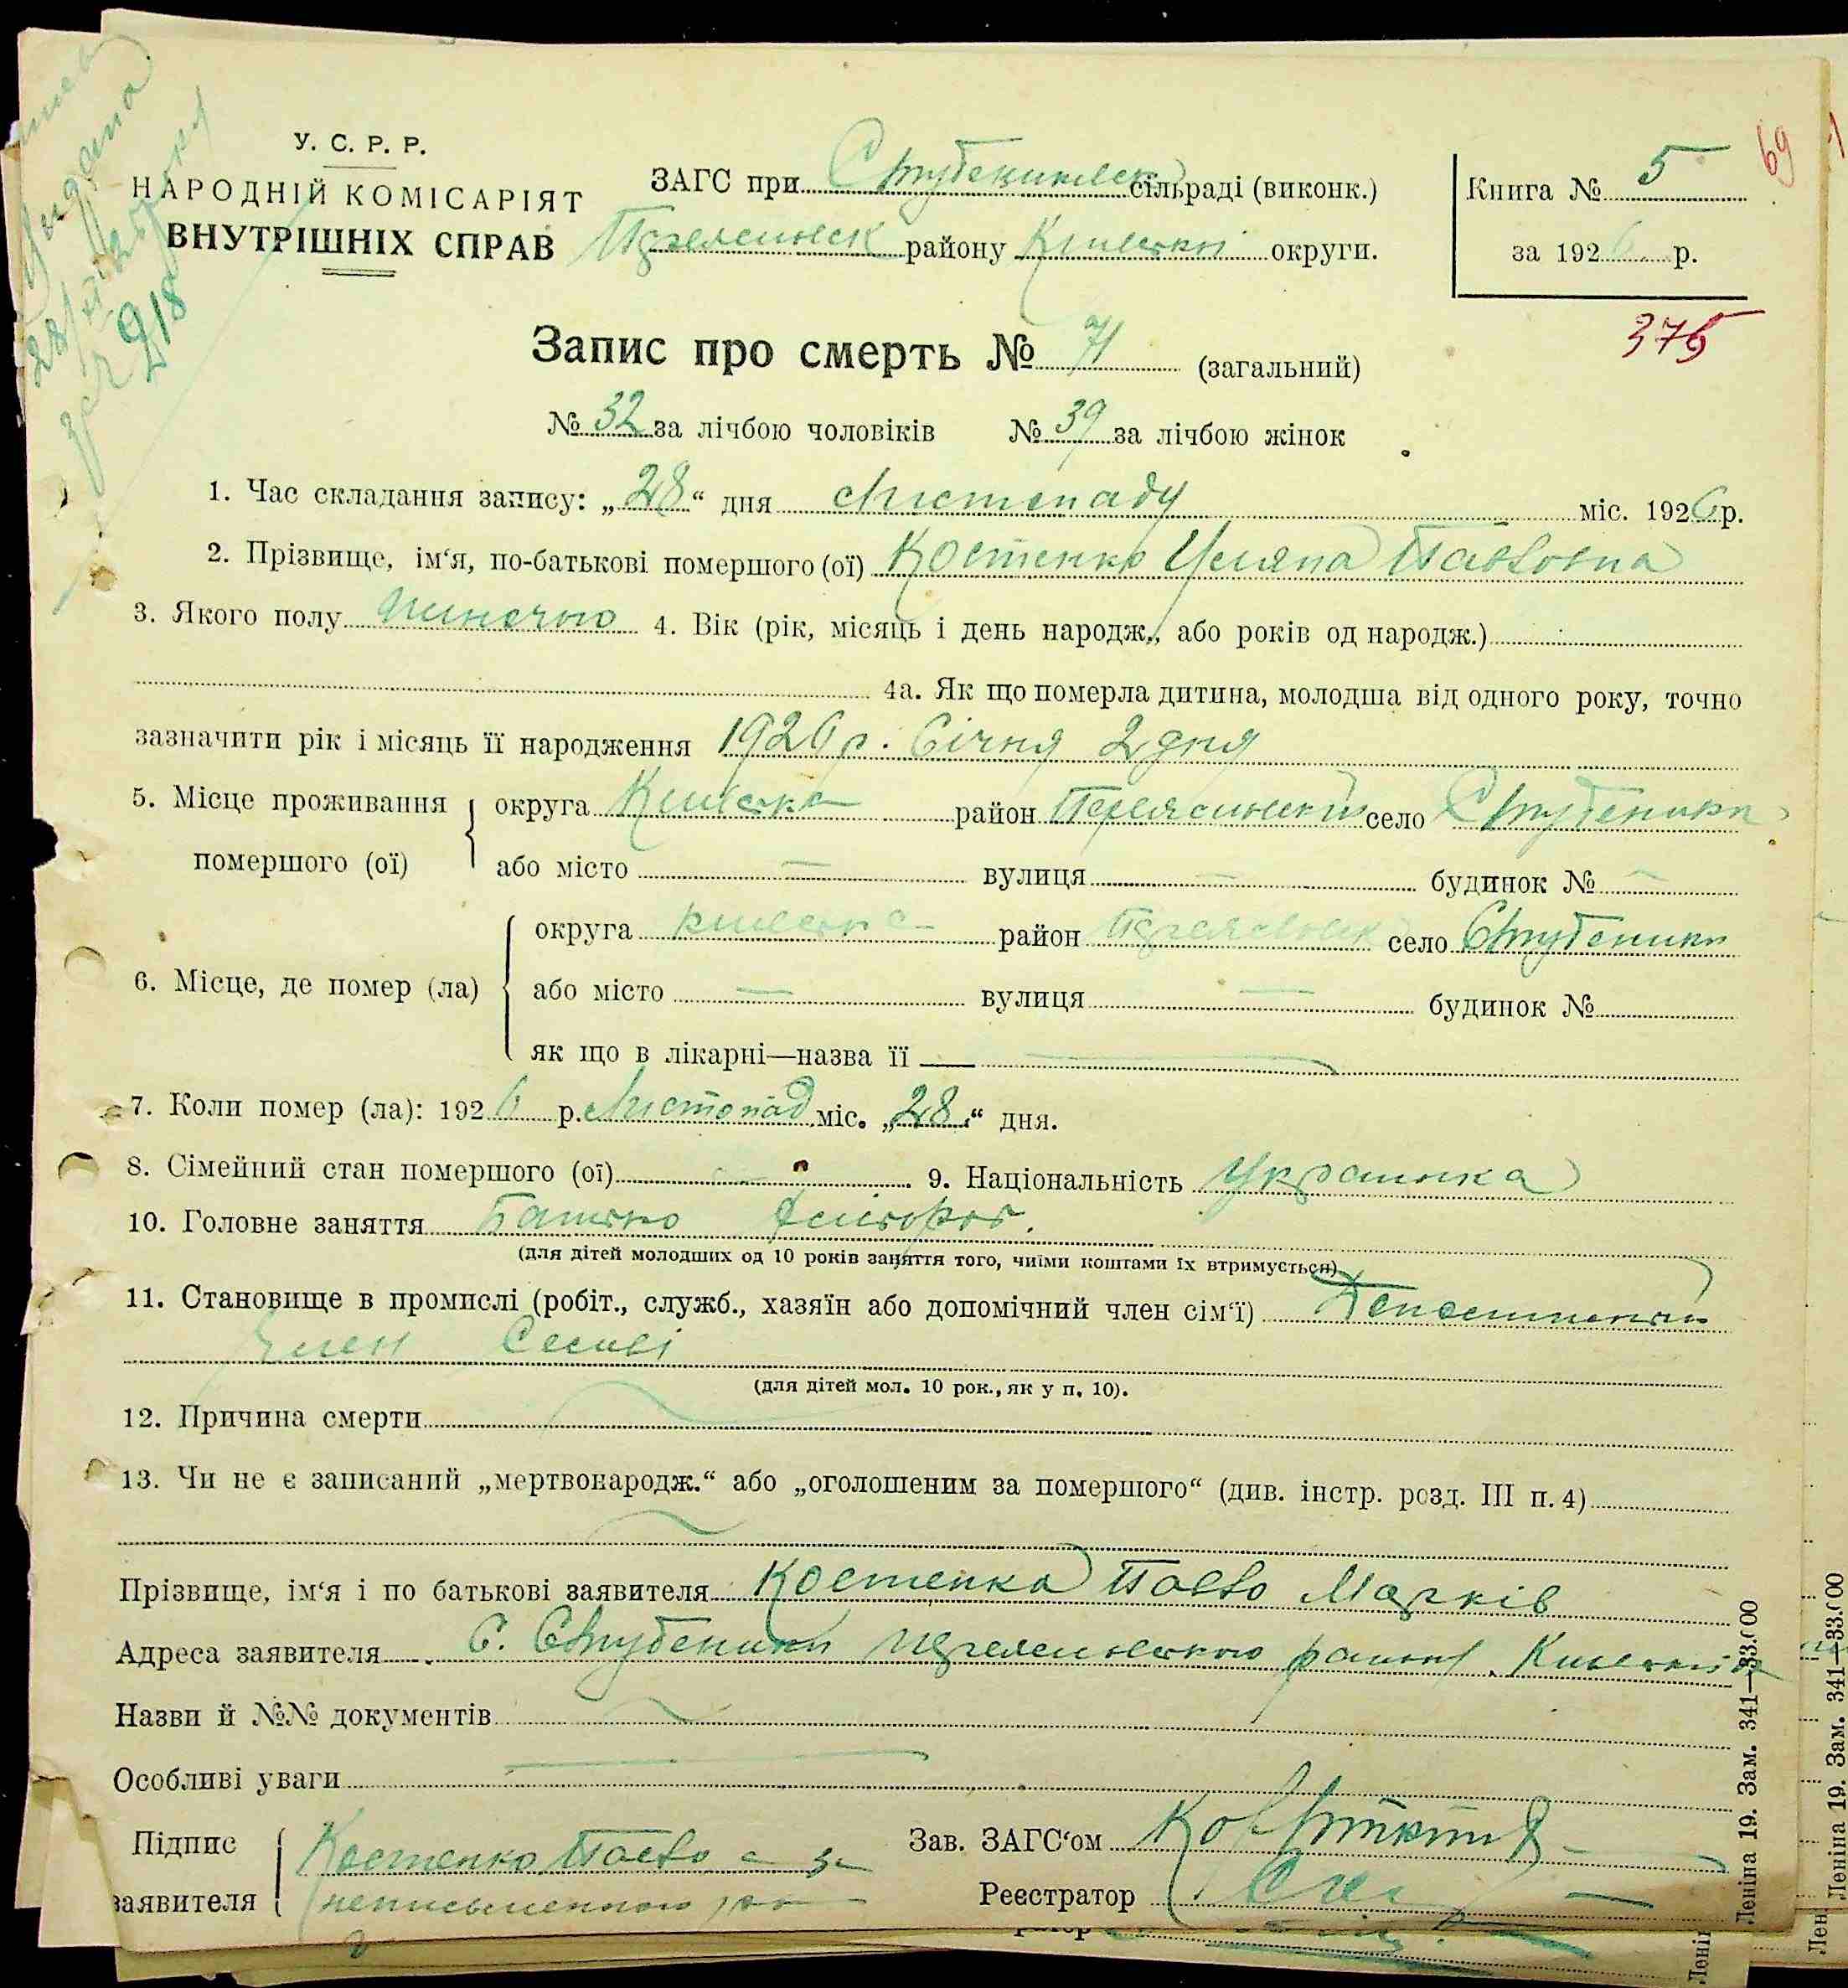 У. С. Р. Р.
НАРОДНІЙ КОМІСАРІЯТ
ВНУТРІШНІХ СПРАВ
ЗАГС при Студениківск сільраді (виконк.)
району Київської округи.
Книга № 5
за 1926 р.
69
375
Запис про смерть № 71 (загальний)
№ 32 за лічбою чоловіків № 39 за лічбою жінок
1. Час складання запису: „28“ дня Листопаду міс. 1926 р.
2. Прізвище, ім‘я, по-батькові помершого (ої) Костенко Уляна Павловна
3. Якого полу жиночого 4. Вік (рік, місяць і день народж., або років од народж.)
4а. Як що померла дитина, молодша від одного року, точно
зазначити рік і місяць її народження 1926 р. Січня 2 дня
5. Місце проживання помершого (ої) округа Київска район Переяславський село Студеники
або місто — вулиця — будинок № —
6. Місце, де помер (ла) округа Київска район Переяславськ село Студеники
або місто — вулиця — будинок №
як що в лікарні—назва її
7. Коли помер (ла): 1926 р. Листопад міс. „28“ дня.
8. Сімейний стан помершого (ої) 9. Національність Украинка
10. Головне заняття Батько хлібороб.
(для дітей молодших од 10 років заняття того, чиїми коштами їх втримується)
11. Становище в промислі (робіт., служб., хазяїн або допомічний член сім‘ї)
член
(для дітей мол. 10 рок., як у п. 10).
12. Причина смерти
13. Чи не є записаний „мертвонародж.“ або „оголошеним за помершого“ (див. інстр. розд. III п. 4)
Прізвище, ім‘я і по батькові заявителя Костенко Павло Марків
Адреса заявителя С. Студеники
Назви й №№ документів
Особливі уваги
Підпис заявителя Костенко Павло а за
Зав. ЗАГС‘ом
Реєстратор
Леніна 19. Зам. 341—33.000
Леніна 19. Зам. 341—33.000